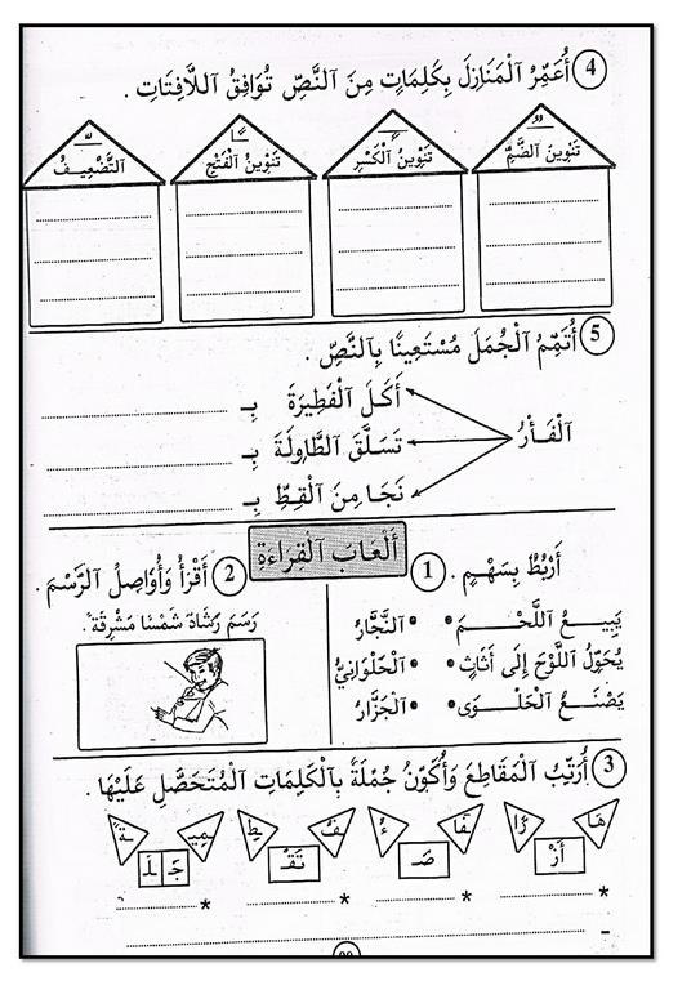 4 أُعَمِّرُ ٱلْمَنَازِلَ بِكَلِمَاتٍ مِنَ ٱلنَّصِّ تُوَافِقُ ٱللَّافِتَاتِ .
تَنْوِينُ ٱلضَّمِّ تَنْوِينُ ٱلْكَسْرِ تَنْوِينُ ٱلْفَتْحِ ٱلتَّضْعِيفُ
5 أُتَمِّمُ ٱلْجُمَلَ مُسْتَعِينًا بِٱلنَّصِّ .
أَكَلَ ٱلْفَطِيرَةَ بِـ
ٱلْفَأْرُ تَسَلَّقَ ٱلطَّاوِلَةَ بِـ
نَجَا مِنَ ٱلْقِطِّ بِـ
أَلْعَابُ ٱلْقِرَاءَةِ
1 أَرْبُطُ بِسَهْمٍ .
يَبِيعُ ٱللَّحْمَ • • ٱلنَّجَّارُ
يُحَوِّلُ ٱللَّوْحَ إِلَى أَثَاثٍ • • ٱلْحَلْوَانِيُّ
يَصْنَعُ ٱلْحَلْوَى • • ٱلْجَزَّارُ
2 أَقْرَأُ وَأُوَاصِلُ ٱلرَّسْمَ .
رَسَمَ رَشَادٌ شَمْسًا مُشْرِقَةً .
3 أُرَتِّبُ ٱلْمَقَاطِعَ وَأُكَوِّنُ جُمْلَةً بِٱلْكَلِمَاتِ ٱلْمُتَحَصَّلِ عَلَيْهَا .
هَا رًا فَا ءُ فُ طِ مِيـ ـةً
أَزْ صَـ تَقْـ جَـ لَـ
* * * *
-